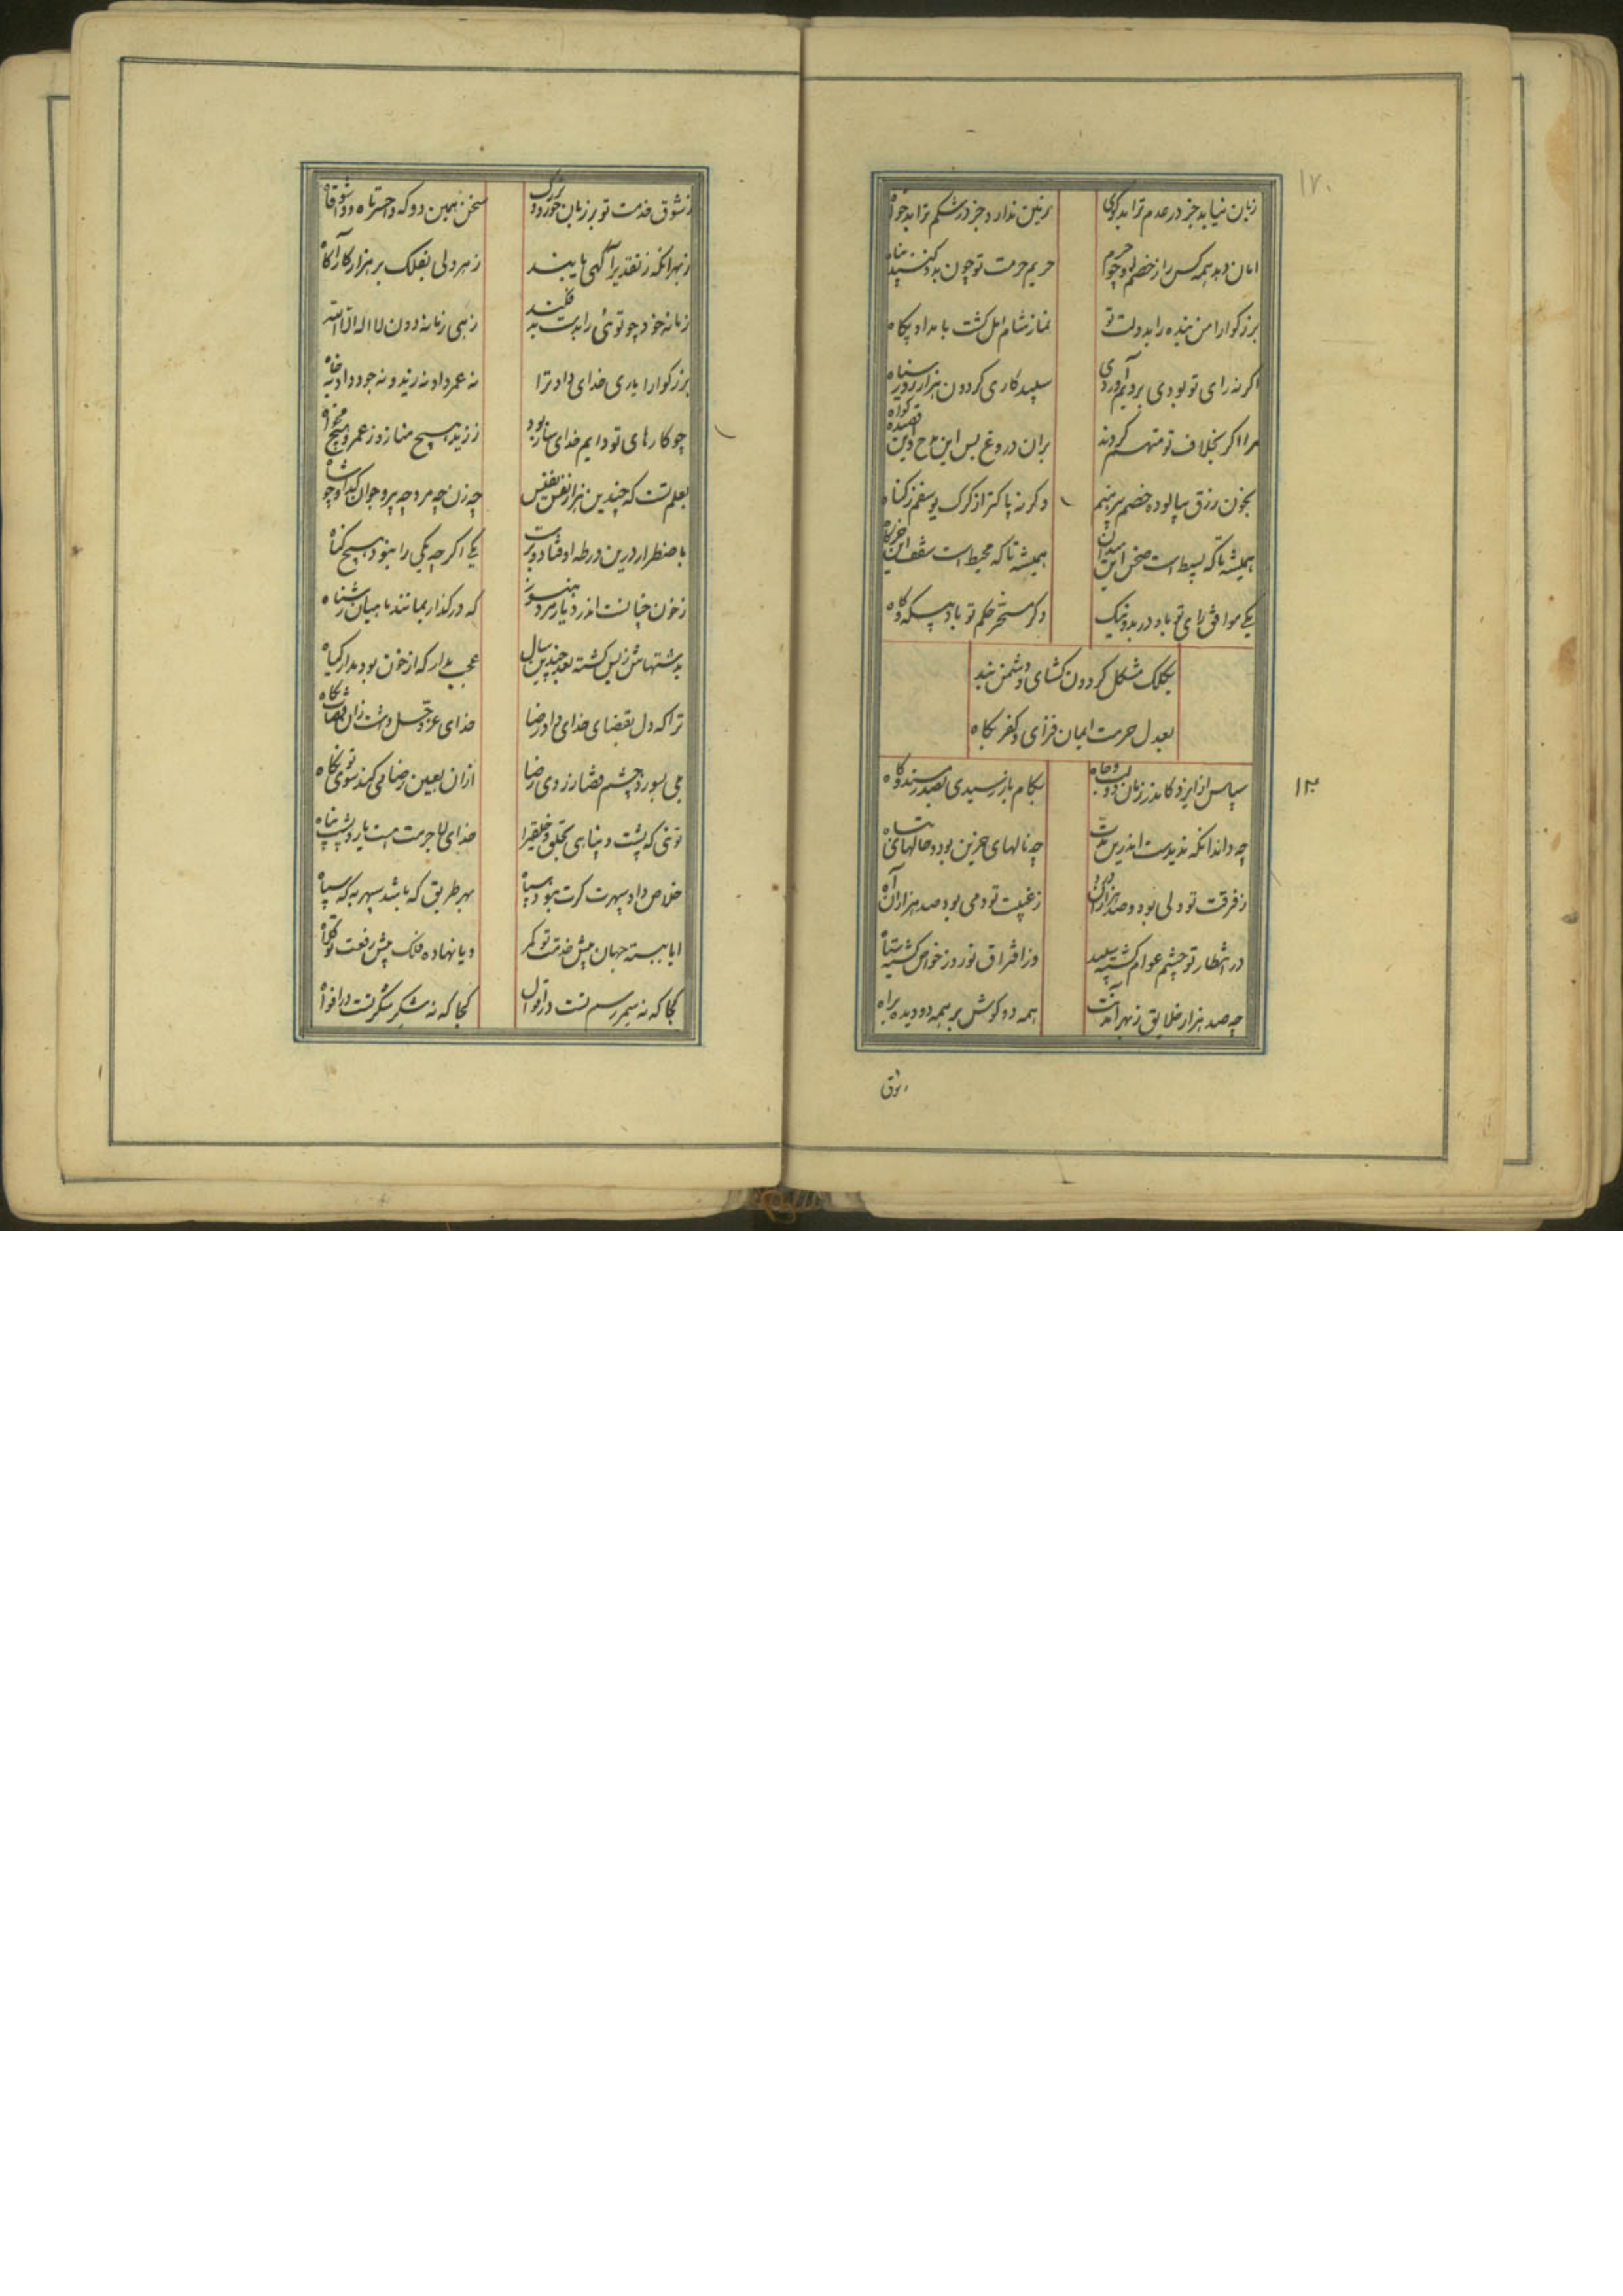 ۱۷۰
زبان نیابد جز در عدم ترا بدکوی زمین ندارد جز در شکم ترا بدخواه
امان دهد همه کس را از خصم حریم حرمت تو چون بدو کنند پناه
بزرکوارا من بنده را بدولت تو نماز شام امل کشت بامداد پکاه
اکر نه رای تو بودی برویم آوردی سپید کاری کردون هزار روز سیاه
مرا اکر بخلاف تو متهم کردند بران دروغ بس این مدح و این قصیده کواه
بخون رزق بیالوده خصم پیرهنم وکرنه پاکتر از کرک یوسفم ز کناه
همیشه تا که بسیط است صحن این میدان همیشه تا که محیط است سقف این خرکاه
یکی موافق رای تو باد در بد و نیک دکر مسخر حکم تو باد بیکه و کاه
بکلک مشکل کردون کشای و دشمن بند
بعدل حرمت ایمان فزای و کفر بکاه
۱۲
سپاس ایزد کاندر زمان دولت و جاه بکام باز رسیدی بصدر مسند و کاه
چه داند انکه ندیدست اندرین مدت چه نالهای حزین بود و حالهای تباه
ز فرقت تو دلی بود و صد هزاران درد ز غیبت تو دمی بود و صد هزاران آه
در انتظار تو چشم عوام کشته سپید وز افتراق تو روز خواص کشته سیاه
چه صد هزار خلایق ز بهر آمدنت همه دو کوش بر همه دو دیده براه
ز شوق
ز شوق خدمت تو بر زبان خورد و بزرک سخن همین دو که واحسرتاه و واشوقاه
ز بهر انکه ز تقدیر آکهی یابند ز هر دلی بفلک بر هزار کارآکاه
زمانه خود چو توئی را بدست بد فکند زهی زمانه دون لا اله الا الله
بزرکوارا یاری خدای داد ترا نه عمر داد نه زید و نه جود داد نه جاه
چو کارهای تو دایم خدای سازد بود ز زید هیچ مناز و ز عمرو هیچ مخواه
بعلم تست که چندین هزار نفس نفیس چه زن چه مرد چه پیر و جوان کدا و چه شاه
باضطرار درین ورطه اوفتاد و برست یکی اکر چه یکی را نبود هیچ کناه
ز خون خیانت اندر دیار مرد هنوز که در کذار بمانند ماهیان ز شناه
بدشتهاش ز بس کشته بعد چندین سال عجب مدار که از خون بود مدار کیاه
ترا که دل بقضای خدای داد رضا خدای عز و جل داشت زان قضات نکاه
می بسوزد چشم قضا ز روی رضا ازان بعین رضا می کند سوی تو نکاه
توئی که پشت و پناهی بخلق و خلیقرا خدای لا جرمت هست یار و پشت و پناه
خلاص داد سپهرت کرت نبود سپاه بهر طریق که باشد سپهر به که سپاه
ایا ببسته جهان پیش خدمت تو کمر ویا نهاده فلک پیش رفعت تو کلاه
کجا که نه سمر رسم تست در اقوال کجا که نه شکر شکر تست در افواه